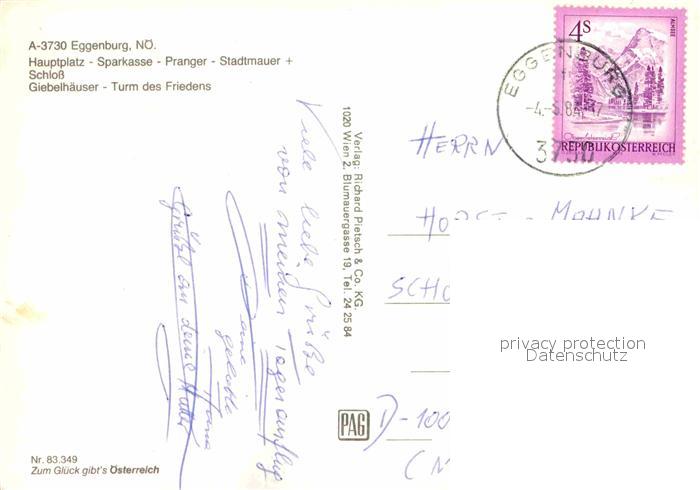 A-3730 Eggenburg, NÖ.
Hauptplatz - Sparkasse - Pranger - Stadtmauer +
Schloß
Giebelhäuser - Turm des Friedens
Viele liebe Grüße
von meinem Tagesausflug
Deine
geliebte
Grüße an deine Mutter
Nr. 83.349
Zum Glück gibt's Österreich
Verlag: Richard Pietsch & Co. KG.
1020 Wien 2, Blumauergasse 19, Tel. 24 25 84
PAG
4S
ALMSEE
REPUBLIK ÖSTERREICH
EGGENBURG
3730
HERRN
HORST - MAHNKE
SCHO
D-100
privacy protection
Datenschutz